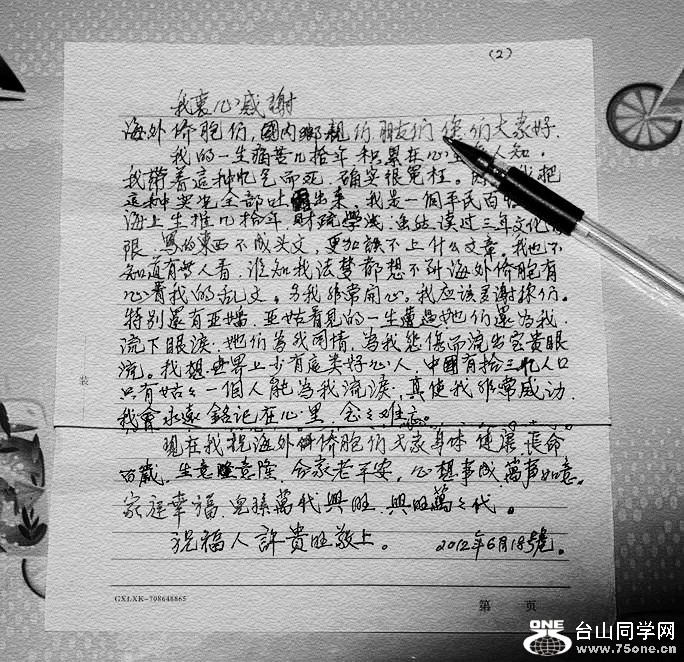 (2)
我衷心感謝
海外侨胞们.國内鄉親们.朋友们.你们大家好.
我的一生痛苦几拾年积累在心里 人知.
我帶着這种忆气而死.确实很冤枉. 我把
這种实 全部吐露出来.我是一個平民百
海上生推几拾年.財疏學浅.虽然读过三年文化
限.寫的東西不成头文.更加談不上什么文章.我也不
知道有無人看.谁知我法梦都想不到海外侨胞有
心看我的乱文.另我非常開心.我应该多谢你们.
特别還有亚嬸.亚姑看見的一生遭遇她们還為我
流下眼淚.她们為我同情.為我悲傷而流出宝貴眼
流.我想世界上少有這类好心人.中國有拾三亿人口
只有姑々一個人能為我流淚.真使我非常感动.
我會永遠銘记在心里.念々难忘.
現在我祝海外侨胞们大家身体健康.長命
百歲.生意隆意隆.合家老平安.心想事成.萬事如意.
家庭幸福.兒孫萬代興旺.興旺萬々代。
祝福人許貴旺敬上。 2012年6月18号晚。
装
GXLXK-708648865
第 页
ONE 台山同学网
www.75one.cn